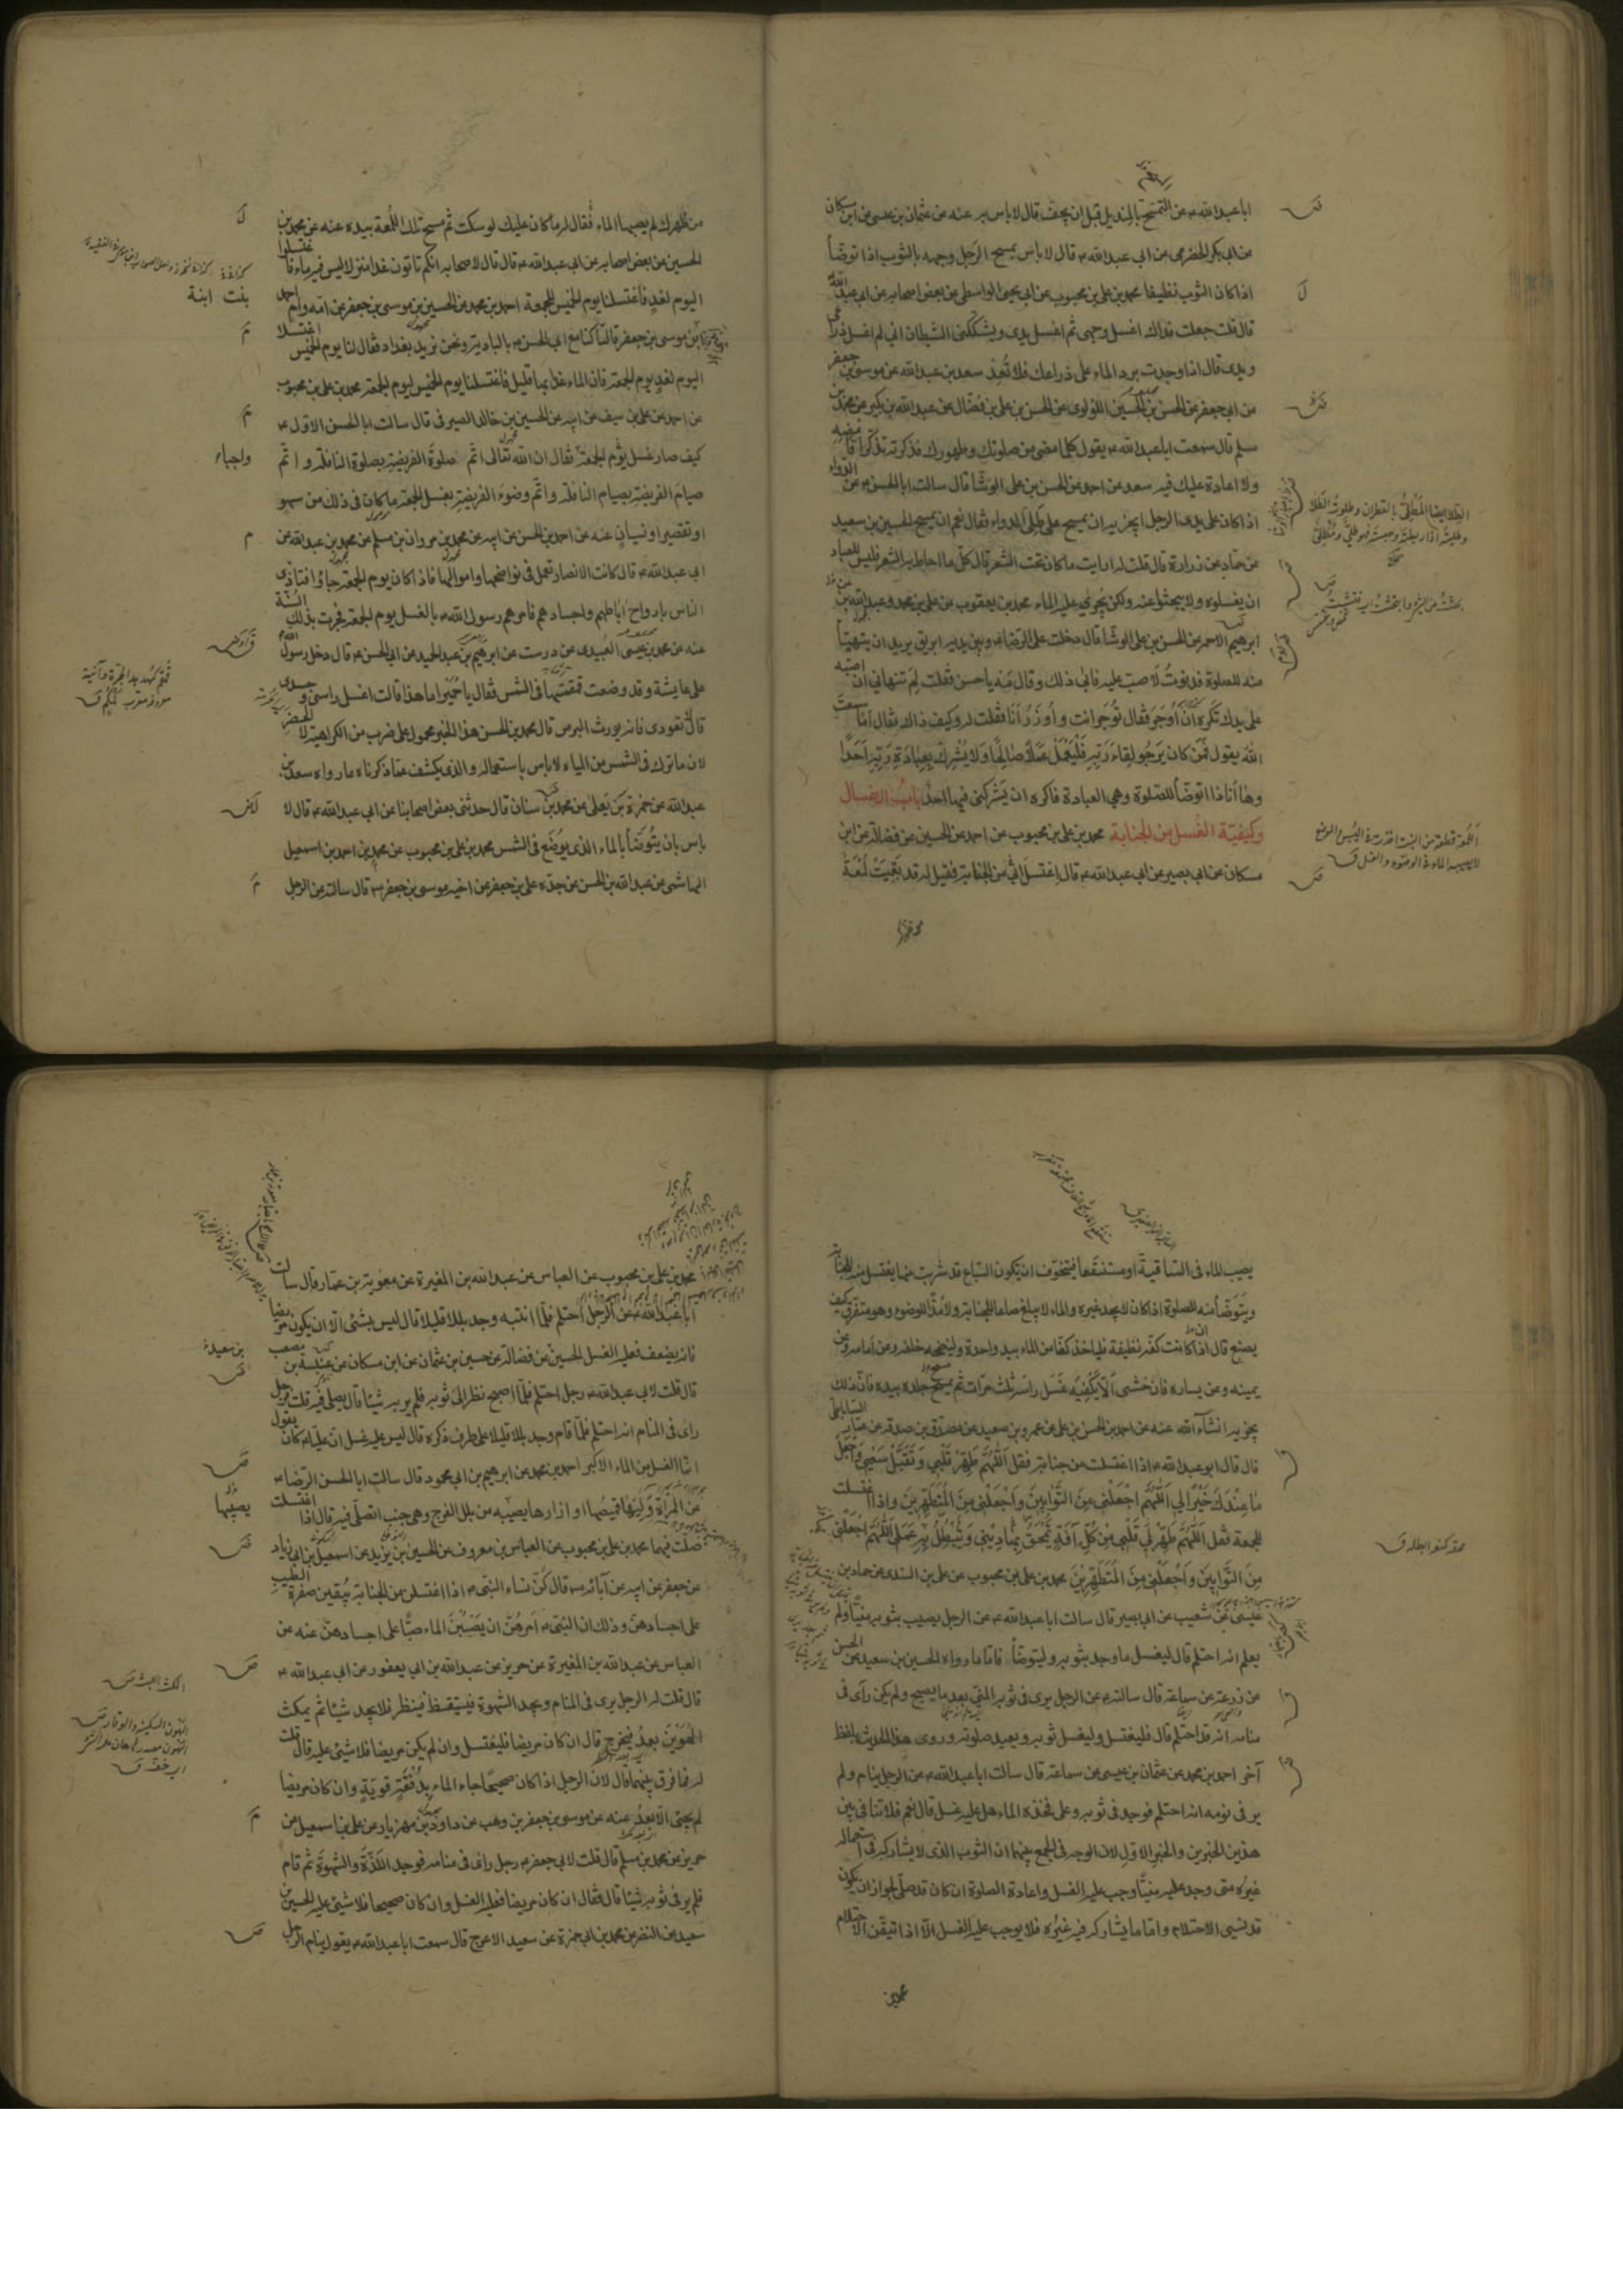 ابا عبد الله ع عن التمسح بالمنديل قبل ان يجف قال لا باس به عنه عن عثمان بن عيسى عن ابن مسكان
عن ابي بكر الحضرمي عن ابي عبد الله ع قال لا باس بمسح الرجل وجهه بالثوب اذا توضأ
اذا كان الثوب نظيفا محمد بن علي بن محبوب عن ابي يحيى الواسطي عن بعض اصحابه عن ابي عبد الله
قال قلت جعلت فداك اغسل وجهي ثم اغسل يدي ويشككني الشيطان اني لم اغسل ذراعي
ويدي قال اذا وجدت برد الماء على ذراعك فلا تعد سعد بن عبد الله عن موسى بن جعفر
عن ابي جعفر عن الحسن بن الحسين اللؤلوي عن الحسن بن علي بن فضال عن عبد الله بن بكير عن محمد بن
مسلم قال سمعت ابا عبد الله ع يقول كلما مضى من صلوتك وطهورك فذكرته تذكرا فامضه
ولا اعادة عليك فيه سعد عن احمد عن الحسن بن علي الوشا قال سالت ابا الحسن ع عن الدواء
اذا كان على يدي الرجل ايجزيه ان يمسح على طلى الدواء فقال نعم ان يمسح الحسين بن سعيد
عن حماد عن زرارة قال قلت له ارايت ما كان تحت الشعر قال كل ما احاط به الشعر فليس للعباد
ان يغسلوه ولا يبحثوا عنه ولكن يجرى عليه الماء محمد بن يعقوب عن علي بن محمد وعبد الله بن
ابرهيم الاحمر عن الحسن بن علي الوشا قال دخلت على الرضا ع وبين يديه ابريق يريد ان يتهيأ
منه للصلوة فدنوت لاصب عليه فابى ذلك وقال مه يا حسن فقلت لم تنهاني ان اصبه
على يدك تكره ان اوجر فقال تؤجر انت واوزر انا فقلت له وكيف ذلك فقال اما سمعت
الله يقول فمن كان يرجو لقاء ربه فليعمل عملا صالحا ولا يشرك بعبادة ربه احدا
وها انا ذا اتوضأ للصلوة وهي العبادة فاكره ان يشركني فيها احد باب الاغسال
وكيفية الغسل من الجنابة محمد بن علي بن محبوب عن احمد عن الحسين عن فضالة عن ابن
مسكان عن ابي بصير عن ابي عبد الله ع قال اغتسل ابي من الجنابة فقيل له قد بقيت لمعة
من ظهرك لم يصبها الماء فقال له ما كان عليك لو سكت ثم مسح تلك اللمعة بيده عنه عن محمد بن
الحسين عن بعض اصحابه عن ابي عبد الله ع قال قال لاصحابه انكم تاتون غدا منزلا ليس فيه ماء فاغتسلوا
اليوم لغد فاغتسلنا يوم الخميس للجمعة احمد بن محمد عن الحسين بن موسى بن جعفر عن امه وام احمد
بن موسى بن جعفر قالتا كنا مع ابي الحسن ع بالبادية ونحن نريد بغداد فقال لنا يوم الخميس اغتسلا
اليوم لغد يوم الجمعة فان الماء غدا بها قليل فاغتسلنا يوم الخميس ليوم الجمعة محمد بن علي بن محبوب
عن احمد عن علي بن سيف عن ابيه عن الحسين بن خالد الصيرفي قال سالت ابا الحسن الاول ع
كيف صار غسل يوم الجمعة فقال ان الله تعالى اتم صلوة الفريضة بصلوة النافلة واتم
صيام الفريضة بصيام النافلة واتم وضوء الفريضة بغسل الجمعة ما كان في ذلك من سهو
او تقصير او نسيان عنه عن احمد بن الحسن عن ابيه عن محمد بن مروان بن مسلم عن محمد بن عبد الله عن
ابي عبد الله ع قال كانت الانصار تعمل في نواضحها واموالها فاذا كان يوم الجمعة جاؤا فتاذى
الناس بارواح اباطهم واجسادهم فامرهم رسول الله ص بالغسل يوم الجمعة فجرت بذلك السنة
عنه عن محمد بن عيسى العبيدي عن درست عن ابرهيم بن عبد الحميد عن ابي الحسن ع قال دخل رسول الله
على عايشة وقد وضعت قمقمتها في الشمس فقال يا حميرا ما هذا قالت اغسل راسي وجسدي
قال لا تعودي فانه يورث البرص قال محمد بن الحسن هذا الخبر محمول على ضرب من الكراهية للحضر
لان ما ترك في الشمس من المياه لا باس باستعماله والذي يكشف عما ذكرناه ما رواه سعد بن
عبد الله عن حمزة بن يعلى عن محمد بن سنان قال حدثني بعض اصحابنا عن ابي عبد الله ع قال لا
باس بان يتوضأ بالماء الذي يوضع في الشمس محمد بن علي بن محبوب عن محمد بن احمد بن اسمعيل
الهاشمي عن عبد الله بن الحسن عن جده علي بن جعفر عن اخيه موسى بن جعفر ع قال سالته عن الرجل
يصيب الماء في الساقية او مستنقعا فيتخوف ان يكون السباع قد شربت منها يغتسل منه للجنابة
ويتوضأ منه للصلوة اذا كان لا يجد غيره والماء لا يبلغ صاعا للجنابة ولا مدا للوضوء وهو متفرق كيف
يصنع قال اذا كانت كفه نظيفة فلياخذ كفا من الماء بيد واحدة ولينضحه خلفه وعن امامه وعن
يمينه وعن يساره فان خشي الا يكفيه غسل راسه ثلث مرات ثم مسح جلده بيده فان ذلك
يجزيه انشاء الله عنه عن احمد بن الحسن بن علي عن عمرو بن سعيد عن مصدق بن صدقة عن عمار الساباطي
قال قال ابو عبد الله ع اذا اغتسلت من جنابة فقل اللهم طهر قلبي وتقبل سعيي واجعل
ما عندك خيرا لي اللهم اجعلني من التوابين واجعلني من المتطهرين واذا اغتسلت
للجمعة فقل اللهم طهر قلبي من كل آفة تمحق بها ديني وتبطل به عملي اللهم اجعلني
من التوابين واجعلني من المتطهرين محمد بن علي بن محبوب عن علي بن السندي عن حماد بن
عيسى عن شعيب عن ابي بصير قال سالت ابا عبد الله ع عن الرجل يصيب بثوبه منيا ولم
يعلم انه احتلم قال ليغسل ما وجد بثوبه وليتوضأ فاما ما رواه الحسين بن سعيد عن الحسن
عن زرعة عن سماعة قال سالته ع عن الرجل يرى في ثوبه المني بعد ما يصبح ولم يكن رآى في
منامه انه قد احتلم قال فليغتسل وليغسل ثوبه ويعيد صلوته وروى هذا الحديث بلفظ
آخر احمد بن محمد عن عثمان بن عيسى عن سماعة قال سالت ابا عبد الله ع عن الرجل ينام ولم
ير في نومه انه احتلم فوجد في ثوبه وعلى فخذه الماء هل عليه غسل قال نعم فلا تنافي بين
هذين الخبرين والخبر الاول لان الوجه في الجمع بينهما ان الثوب الذي لا يشاركه في استعماله
غيره متى وجد عليه منيا وجب عليه الغسل واعادة الصلوة ان كان قد صلى لجواز ان يكون
قد نسي الاحتلام واما ما يشاركه فيه غيره فلا يوجب عليه الغسل الا اذا تيقن الاحتلام
محمد بن علي بن محبوب عن العباس عن عبد الله بن المغيرة عن معوية بن عمار قال سالت
ابا عبد الله ع عن الرجل احتلم فلما انتبه وجد بللا قليلا قال ليس بشئ الا ان يكون مريضا
فانه يضعف فعليه الغسل الحسين عن فضالة عن حسين بن عثمان عن ابن مسكان عن عنبسة بن مصعب
قال قلت لابي عبد الله ع رجل احتلم فلما اصبح نظر الى ثوبه فلم ير به شيئا قال يصلي فيه قلت فرجل
راى في المنام انه احتلم فلما قام وجد بللا قليلا على طرف ذكره قال ليس عليه غسل ان عليا ع كان يقول
انما الغسل من الماء الاكبر احمد بن محمد عن ابرهيم بن ابي محمود قال سالت ابا الحسن الرضا ع
عن المرأة وليها قميصها او ازارها يصيبه من بلل الفرج وهي جنب اتصلي فيه قال اذا اغتسلت
صلت فيهما محمد بن علي بن محبوب عن العباس بن معروف عن الحسين بن يزيد عن اسمعيل بن ابي زياد
عن جعفر عن ابيه عن آبائه ع قال كن نساء النبي ص اذا اغتسلن من الجنابة يبقين صفرة الطيب
على اجسادهن وذلك ان النبي ص امرهن ان يصببن الماء صبا على اجسادهن عنه عن
العباس عن عبد الله بن المغيرة عن حريز عن عبد الله بن ابي يعفور عن ابي عبد الله ع
قال قلت له الرجل يرى في المنام ويجد الشهوة فيستيقظ فينظر فلا يجد شيئا ثم يمكث
الهوين بعد فيخرج قال ان كان مريضا فليغتسل وان لم يكن مريضا فلا شئ عليه قال قلت
له فما فرق بينهما قال لان الرجل اذا كان صحيحا جاء الماء بدفقة قوية وان كان مريضا
لم يجئ الا بعد عنه عن موسى بن جعفر بن وهب عن داود بن مهزيار عن علي بن اسمعيل عن
حريز عن محمد بن مسلم قال قلت لابي جعفر ع رجل راى في منامه فوجد اللذة والشهوة ثم قام
فلم ير في ثوبه شيئا قال فقال ان كان مريضا فعليه الغسل وان كان صحيحا فلا شئ عليه الحسين بن
سعيد عن النضر عن محمد بن ابي حمزة عن سعيد الاعرج قال سمعت ابا عبد الله ع يقول ينام الرجل